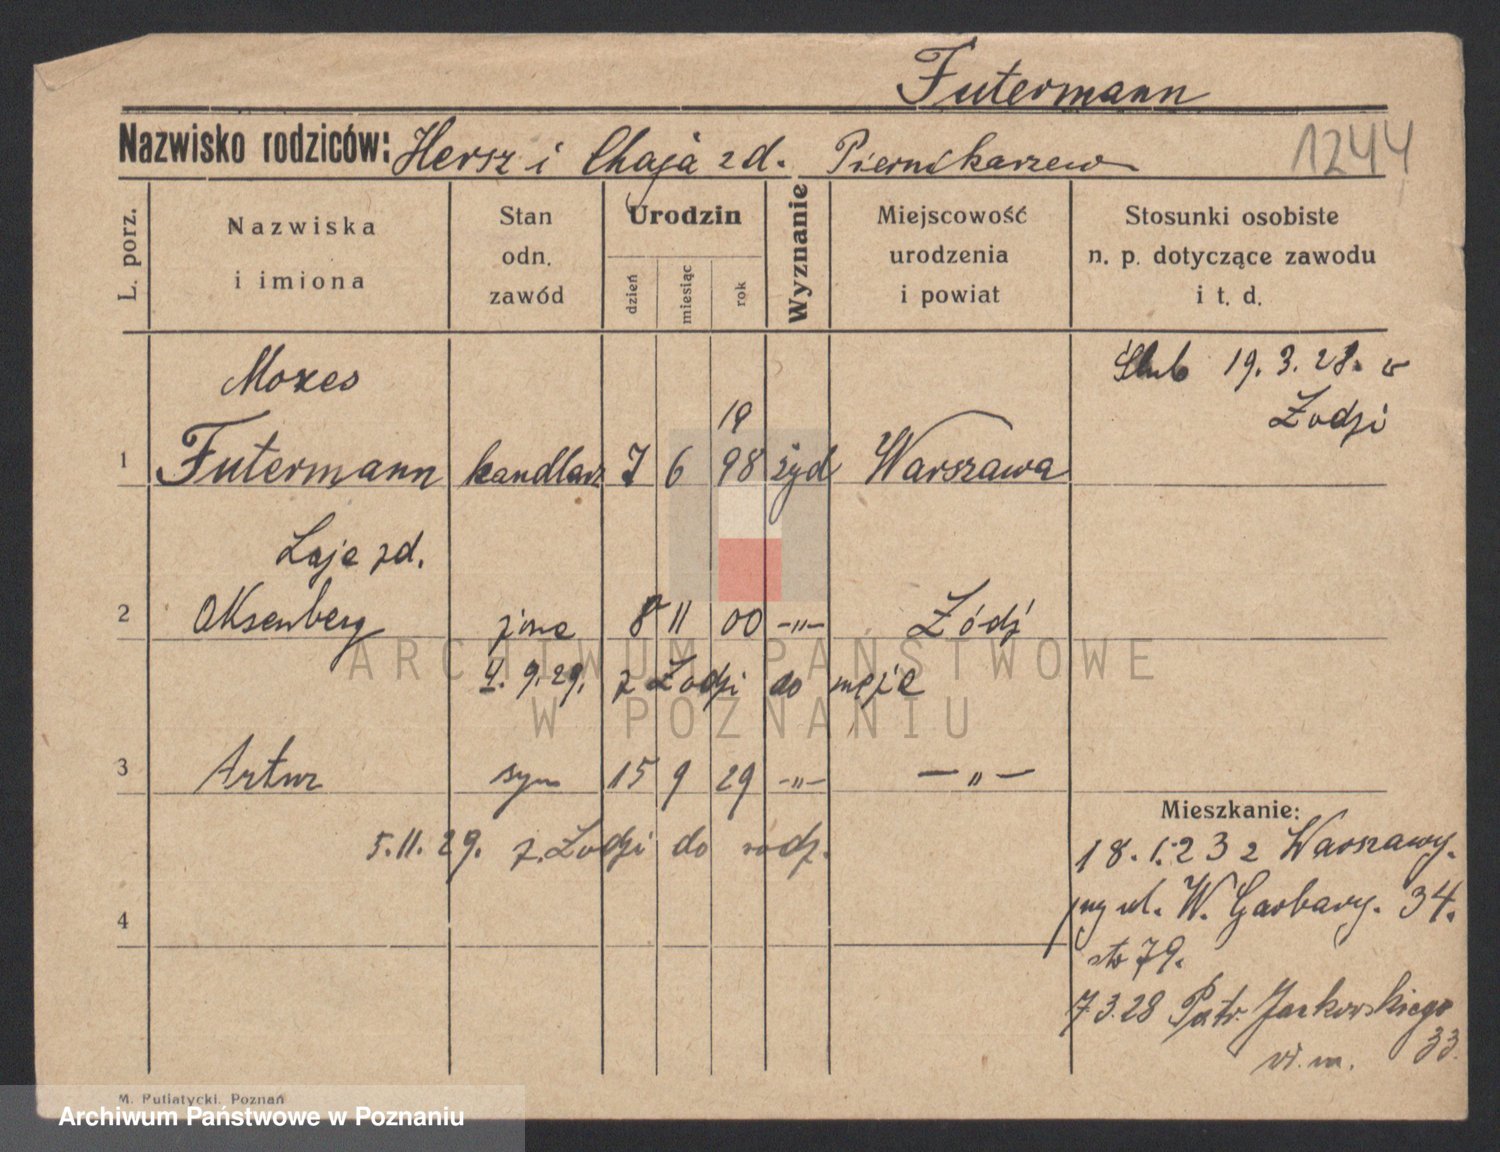 Futermann
Nazwisko rodziców: Hersz i Chaja zd. Piernikarzew
1244
L. porz.
Nazwiska i imiona
Stan odn. zawód
Urodzin
dzień
miesiąc
rok
Wyznanie
Miejscowość urodzenia i powiat
Stosunki osobiste n. p. dotyczące zawodu i t. d.
Mozes
Ślub 19. 3. 28. w
Łodzi
19
1 Futermann handlarz 7 6 98 żyd Warszawa
Laje zd.
2 Oksenberg żona 8 11 00 -"- Łódź
4. 9. 29. z Łodzi do męża
3 Artur syn 15 9 29 -"- -"-
5. 11. 29. z Łodzi do rodz.
4
Mieszkanie:
18. 1. 23 z Warszawy.
przy ul. W. Garbary. 34.
str 79.
7.3.28 Patr. Jackowskiego
33.
M. Putiatycki, Poznań
ARCHIWUM PAŃSTWOWE
W POZNANIU
Archiwum Państwowe w Poznaniu